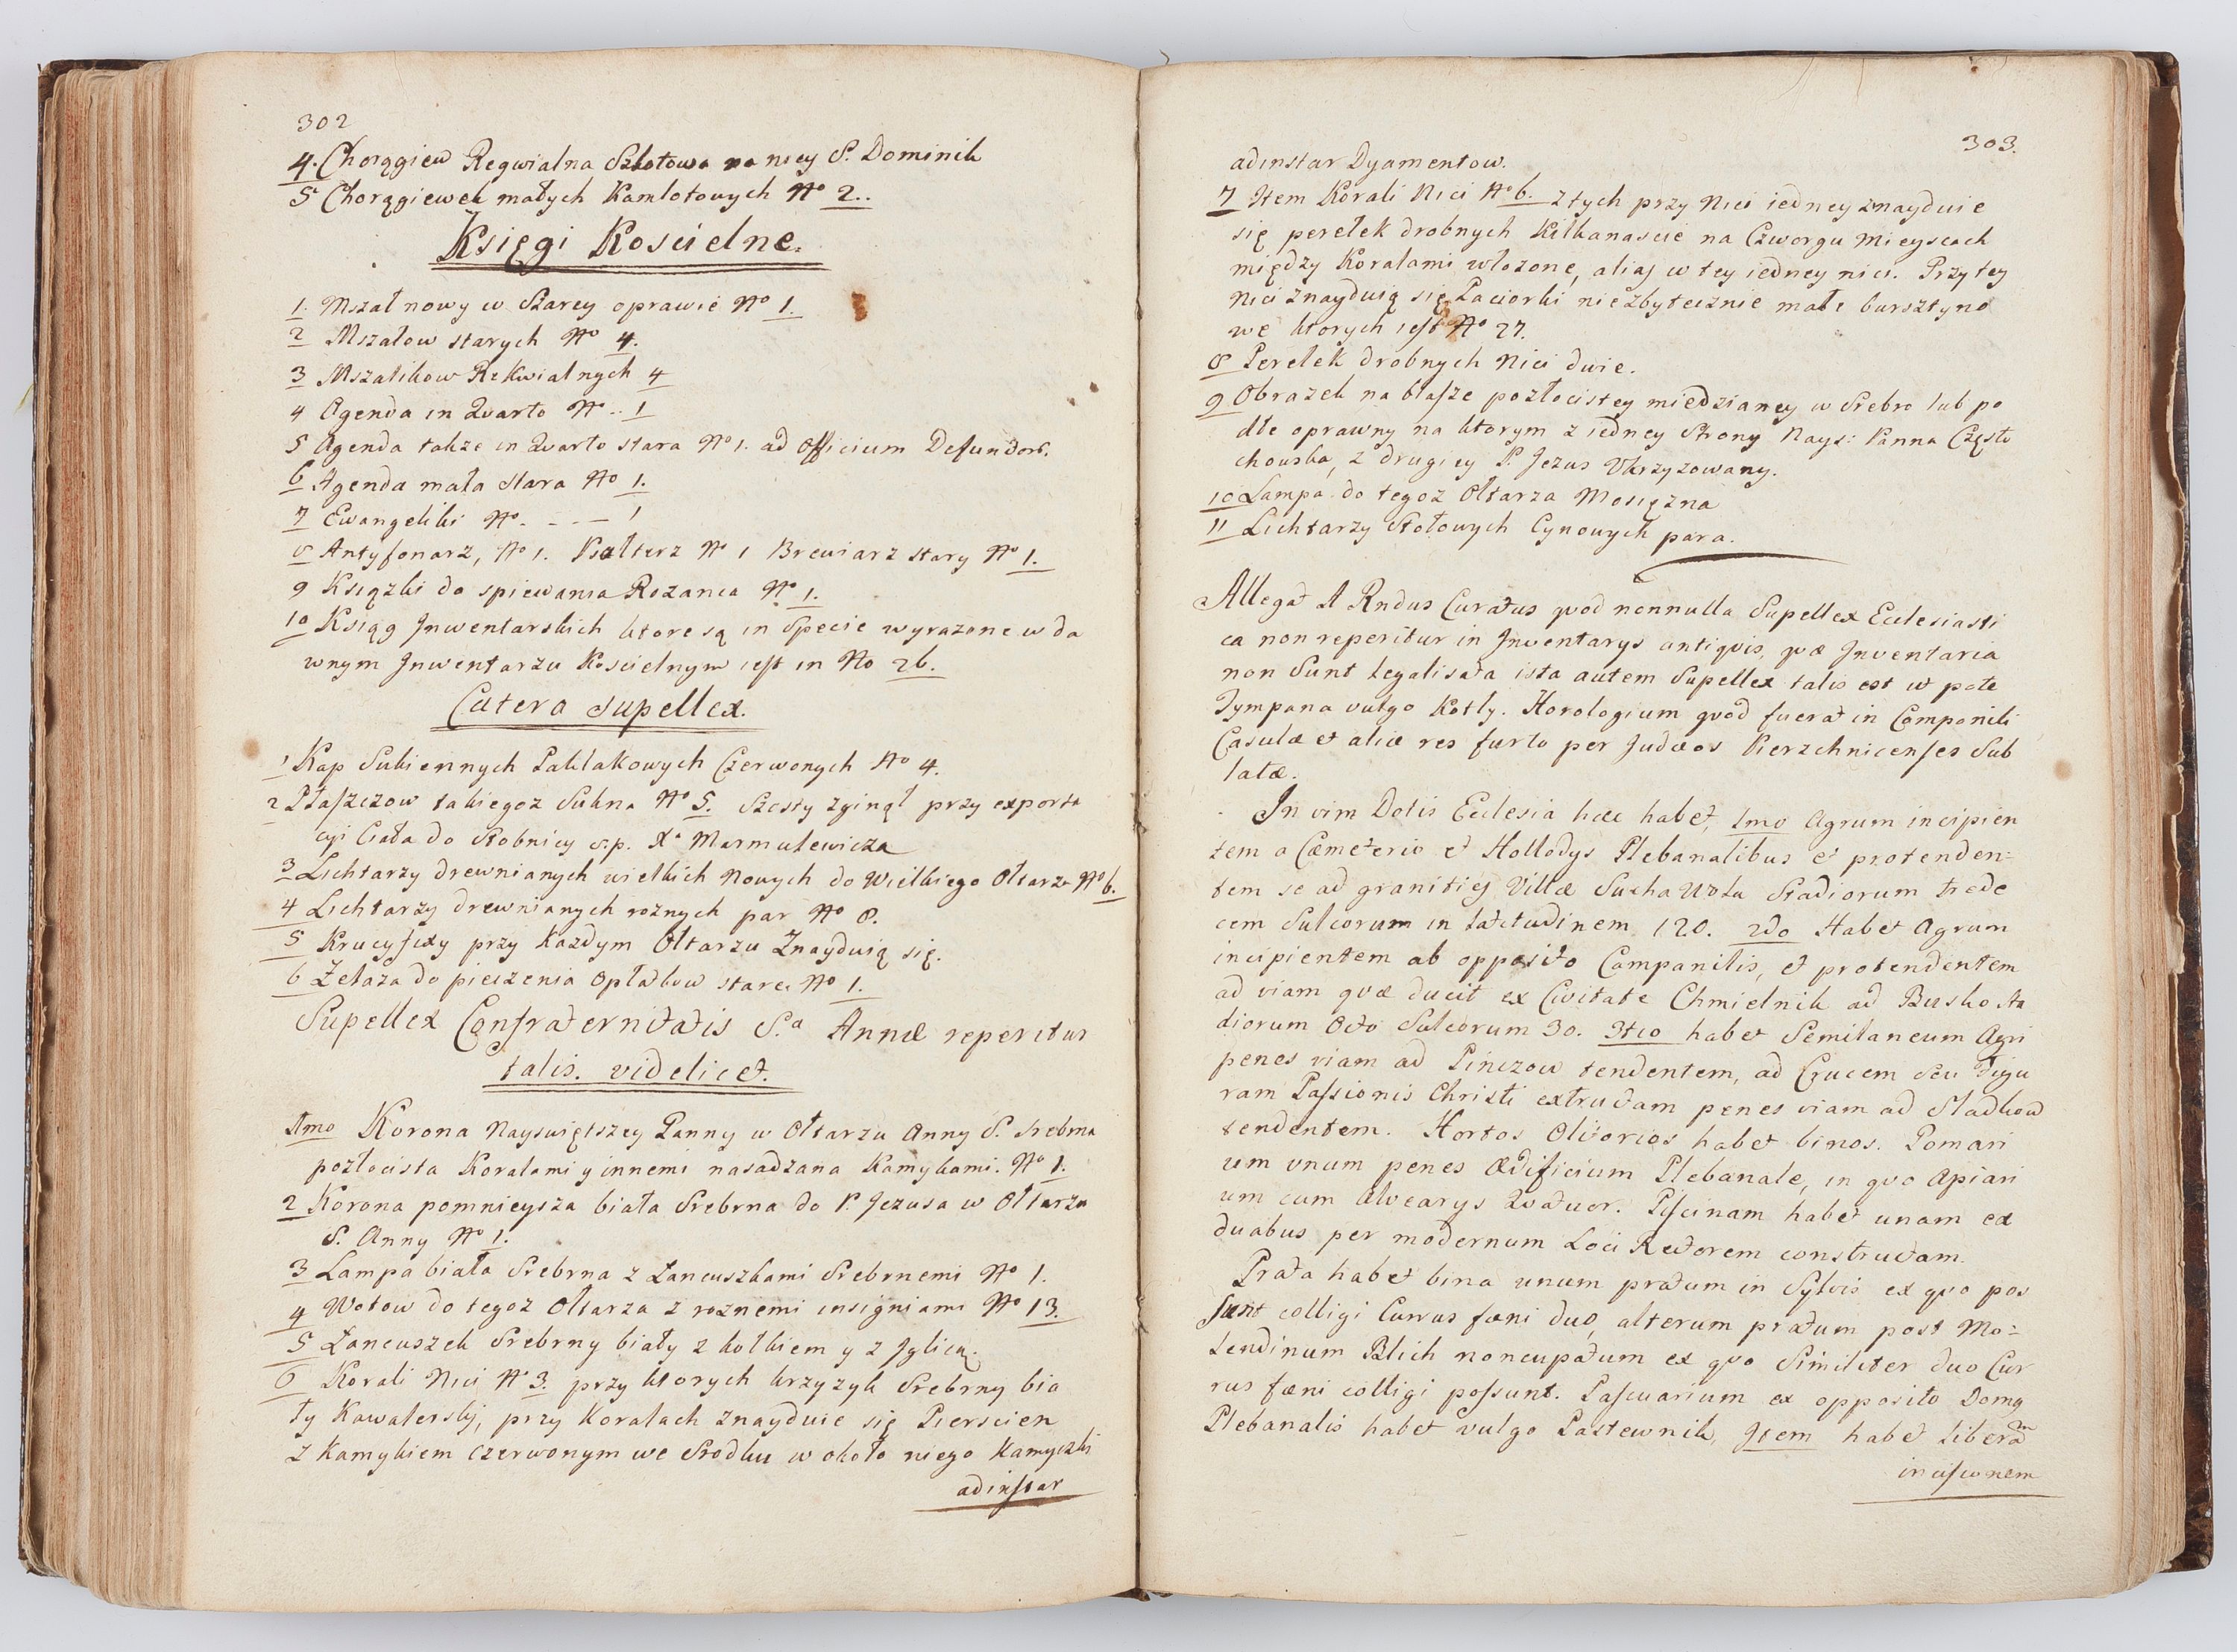 302
4. Chorągiew Reqwialna Szlotowa na niey S. Dominik
5 Chorągiewek małych Kamlotowych No 2..
Księgi Koscielne.
1. Mszał nowy w Starey oprawie No 1.
2 Mszałow starych No 4.
3 Mszalikow Rekwialnych 4
4 Agenda in Quarto No .. 1
5 Agenda takze in Quarto stara No 1. ad Officium Defunctor.
6 Agenda mała stara No 1.
7 Ewangeliki No. - - - 1
8 Antyfonarz, No 1. Psalterz No 1 Brewiarz stary No 1.
9 Ksiązki do spiewania Rozanca No 1.
10 Ksiąg Inwentarskich ktore są in Specie wyrazone w da
wnym Inwentarzu Koscielnym iest in No 26.
Cætera supellex.
1 Kap Sukiennych Paklakowych Czerwonych No 4.
2 Płaszczow takiegoz Sukna No 5. Szosty zginął przy exporta
cyi Ciała do Stobnicy s.p. Xa Marmulewicza
3 Lichtarzy drewnianych wielkich Nowych do Wielkiego Ołtarza No 6.
4 Lichtarzy drewnianych roznych par No 8.
5 Krucyfixy przy kazdym Ołtarzu Znayduią się.
6 Zelaza do pieczenia Opłatkow stare No 1.
Supellex Confraternitatis S.a Annæ reperitur
talis. videlicet.
1mo Korona Nayswiętszey Panny w Ołtarzu Anny S. srebrna
pozłocista Koralami y innemi nasadzana Kamykami. No 1.
2 Korona pomnieysza biała Srebrna do P. Jezusa w Ołtarzu
S. Anny No 1.
3 Lampa biała Srebrna z Łancuszkami Srebrnemi No 1.
4 Wotow do tegoz Ołtarza z roznemi insigniami No 13.
5 Łancuszek Srebrny biały z kołkiem y z Iglicą.
6 Korali Nici No 3. przy ktorych krzyzyk Srebrny bia
ły Kawalerski, przy Koralach znayduie się Pierscien
z Kamykiem czerwonym we Srodku w około niego Kamyczki
adinstar
303.
adinstar Dyamentow.
7 Item Korali Nici No 6. z tych przy Nici iedney znayduie
się perełek drobnych Kilkanascie na Czworgu Mieyscach
między Koralami włozone, alias w tey iedney nici. Przy tey
Nici znayduią się Paciorki niezbytecznie małe bursztyno
we ktorych iest No 27.
8 Perełek drobnych Nici dwie.
9 Obrazek na blasze pozłocistey miedzianey w Srebro lub po
dłe oprawny na ktorym z iedney Strony Nays: Panna Często
chowska, z drugiey P. Jezus Ukrzyzowany.
10 Lampa do tegoz Ołtarza Mosięzna
11 Lichtarzy Stołowych Cynowych para.
Allegat A Rndus Curatus qvod nonnulla Supellex Ecclesiasti
ca non reperitur in Inventarys antiqvis, qvæ Inventaria
non Sunt legalisata ista autem Supellex talis est ut pote
Tympana vulgo Kotły. Horologium qvod fuerat in Campanili
Casulæ et aliæ res furto per Judæos Pierzchnicenses Sub
latæ.
In vim Dotis Ecclesia hæc habet, 1mo Agrum incipien
tem a Cæmeterio et Hollodys Plebanalibus et protenden=
tem se ad granities Villæ Sucha Wola Stadiorum trede
cem Sulcorum in Latitudinem 120. 2do Habet Agrum
incipientem ab opposito Campanilis, et protendentem
ad viam qvæ ducit ex Civitate Chmielnik ad Busko Sta
diorum Octo Sulcorum 30. 3tio habet Semilaneum Agri
penes viam ad Pinczow tendentem, ad Crucem seu Figu
ram Passionis Christi extructam penes viam ad Sladkow
tendentem. Hortos Olitorios habet binos. Pomari
um unum penes Ædificium Plebanale, in qvo Apiari
um cum Alvearys Quatuor. Piscinam habet unam ex
duabus per modernum Loci Rectorem constructam.
Prata habet bina unum pratum in Sylvis ex qvo pos
sunt colligi Currus fæni duo, alterum pratum post Mo=
lendinum Blich noncupatum ex qvo Similiter duo Cur
rus fæni colligi possunt. Pascuarium ex opposito Domq
Plebanalis habet vulgo Pastewnik, Item habet Liberam
incisionem